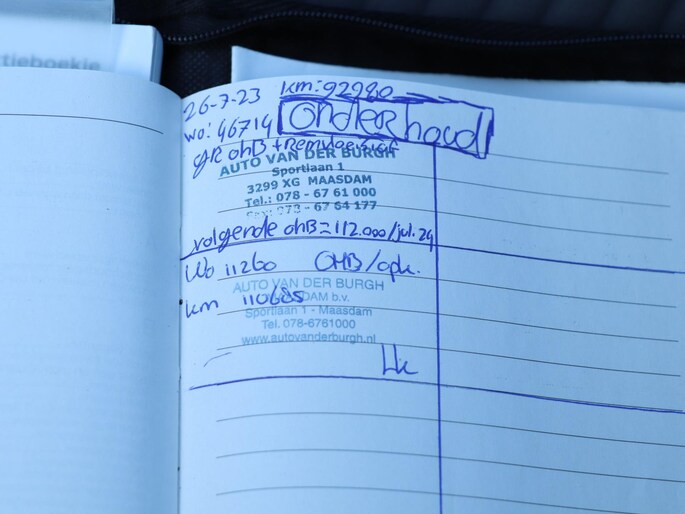 tieboekje
26-7-23 km: 92980
wo: 46714 Onderhoud
GR OHB + Remvloeistof
AUTO VAN DER BURGH
Sportlaan 1
3299 XG MAASDAM
Tel.: 078 - 67 61 000
Fax: 078 - 67 64 177
volgende OHB = 112.000/jul. 24
Wo 11260 OHB/apk.
AUTO VAN DER BURGH
km 110685
MAASDAM b.v.
Sportlaan 1 - Maasdam
Tel. 078-6761000
www.autovanderburgh.nl